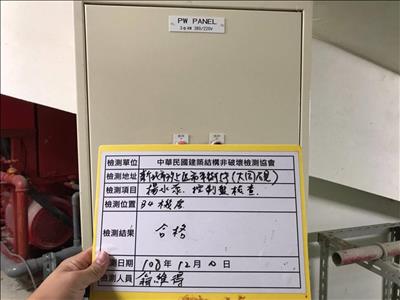 PW PANEL
3φ4W 380/220V
檢測單位 中華民國建築結構非破壞檢測協會
檢測地址 新北市
檢測項目 揚水泵．控制盤檢查．
檢測位置 B4機房
檢測結果 合格
檢測日期 108年12月 日
檢測人員